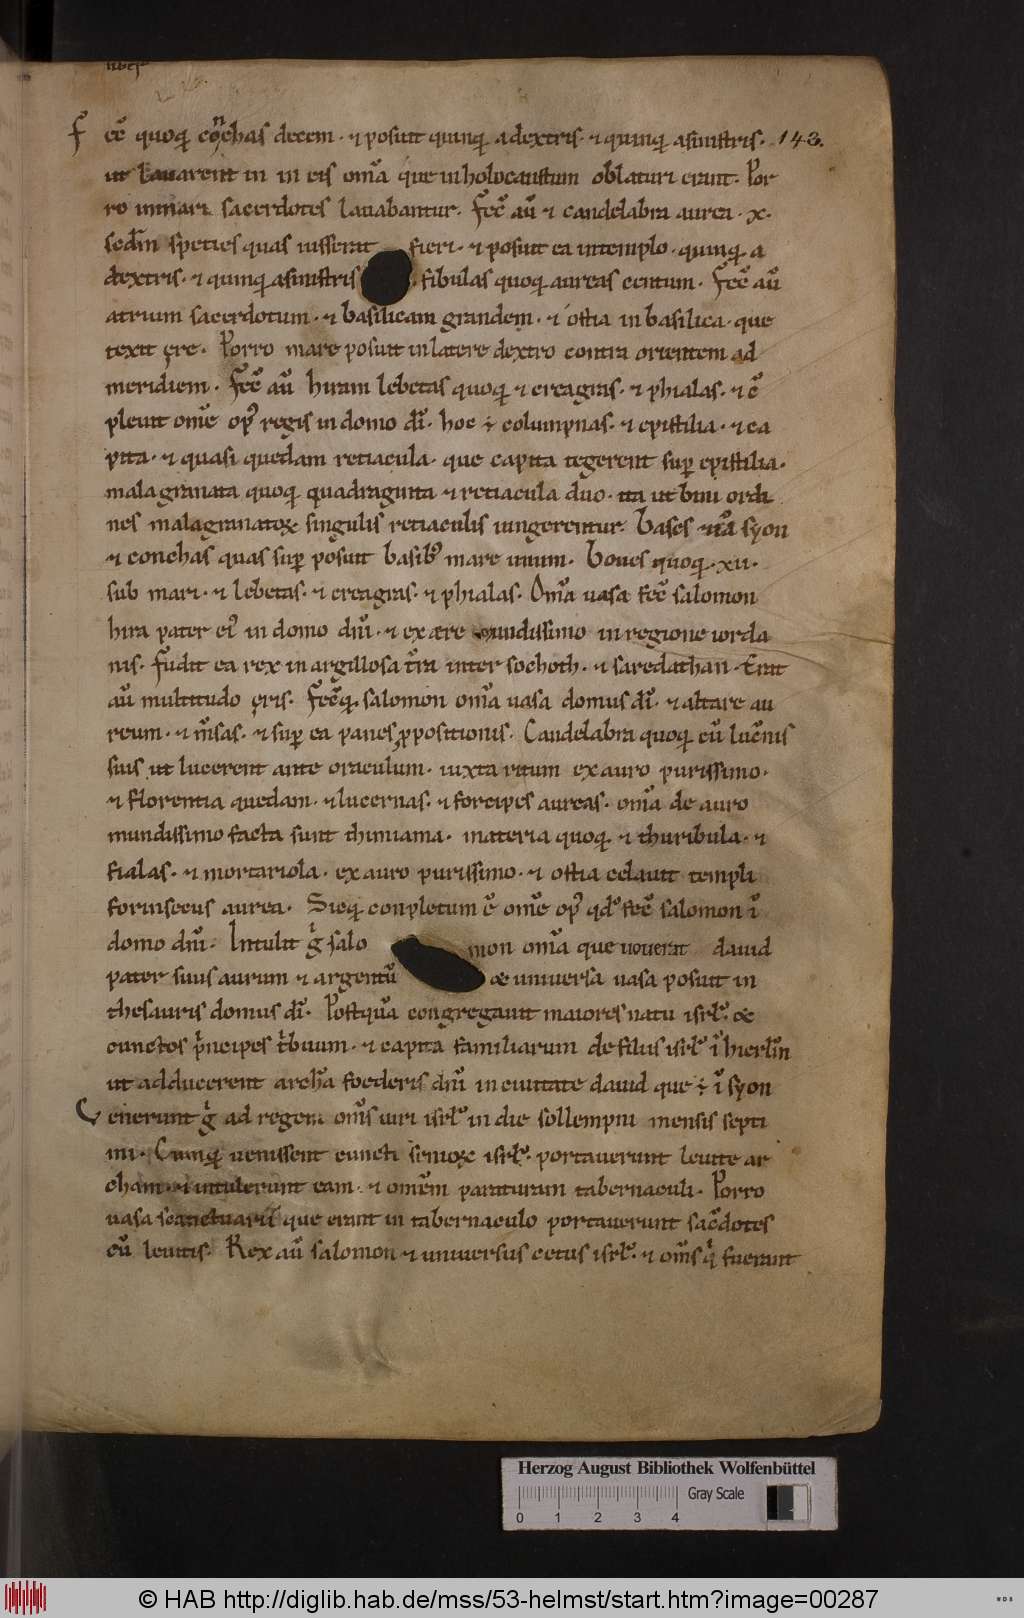 liber
Fecͨ quoq; conchas decem · ⁊ posuit quinq; a dextris · ⁊ quinq; asinistris · 143.
ut lauarent in in eis om̅a que in holocaustum oblaturi erant · Por
ro in mari sacerdotes lauabantur · Fec̅ au̅ ⁊ candelabra aurea · x ·
sed̅m speties quas iusserat fieri · ⁊ posuit ea in templo · quinq; a
dextris · ⁊ quinq; asinistris · fibulas quoq; aureas centum · Fec̅ au̅
atrium sacerdotum · ⁊ basilicam grandem · ⁊ ostia in basilica · que
texit ęre · Porro mare posuit in latere dextro contra orientem ad
meridiem · Fec̅ au̅ hiram lebetas quoq; ⁊ creagras · ⁊ phialas · ⁊ c̅
pleuit om̅e op᷒ regis in domo di̅ · hoc ÷ columpnas · ⁊ epistilia · ⁊ ca
pita · ⁊ quasi quedam retiacula · que capita tegerent sup̲ epistilia ·
mala granata quoq; quadraginta ⁊ retiacula duo · ita ut bini ordi
nes malagranatoꝝ singulis retiaculis iungerentur · Bases
⁊ conchas quas sup̲ posuit basib᷒ mare unum · Boues quoq; · xii ·
sub mari · ⁊ lebetas · ⁊ creagras · ⁊ phialas · Om̅a uasa fec̅ salomon
hira pater ei᷒ in domo dn̅i · ⁊ ex ære mundissimo in regione iorda
nis · Fudit ea rex in argillosa t̅ra inter sochoth · ⁊ saredathan · Erat
au̅ multitudo ęris · Fec̅q; salomon om̅a uasa domus di̅ · ⁊ altare au
reum · ⁊ m̅sas · ⁊ sup̲ ea panes ꝓpositionis · Candelabra quoq; cu̅ luc̅nis
suis ut lucerent ante oraculum · iuxta ritum ex auro purissimo ·
⁊ florentia quedam · ⁊ lucernas · ⁊ forcipes aureas · om̅a de auro
mundissimo facta sunt thimiama · materia quoq; ⁊ thuribula · ⁊
fialas · ⁊ mortariola · ex auro purissimo · ⁊ ostia celauit templi
forinsecus aurea · Sicq; conpletum e̅ om̅e op᷒ qd̅ fec̅ salomon i̅
domo dn̅i · Intulit gͥ salo mon om̅a que uouerat dauid
pater suus aurum ⁊ argentu̅ & uniuersa uasa posuit in
thesauris domus di̅ · Postqua̅ congregauit maiores natu isrl̅ · &
cunctos pͥncipes tͥbuum · ⁊ capita familiarum de filiis isrl̅ i̅ hierl̅m
ut adducerent archa̅ foederis dn̅i in ciuitate dauid que ÷ i̅ syon
Venerunt gͥ ad regem om̅s uiri isrl̅ in die sollempni mensis septi
mi · Cumq; uenissent cuncti senioꝝ isrl̅ · portauerunt leuite ar
cham · ⁊ intulerunt eam · ⁊ ome̅m paraturam tabernaculi · Porro
uasa sanctuarii que erant in tabernaculo portauerunt sac̅dotes
cu̅ leuitis · Rex au̅ salomon ⁊ uniuersus cetus isrl̅ · ⁊ om̅s qͥ fuerunt
Herzog August Bibliothek Wolfenbüttel
Gray Scale
0 1 2 3 4
© HAB http://diglib.hab.de/mss/53-helmst/start.htm?image=00287